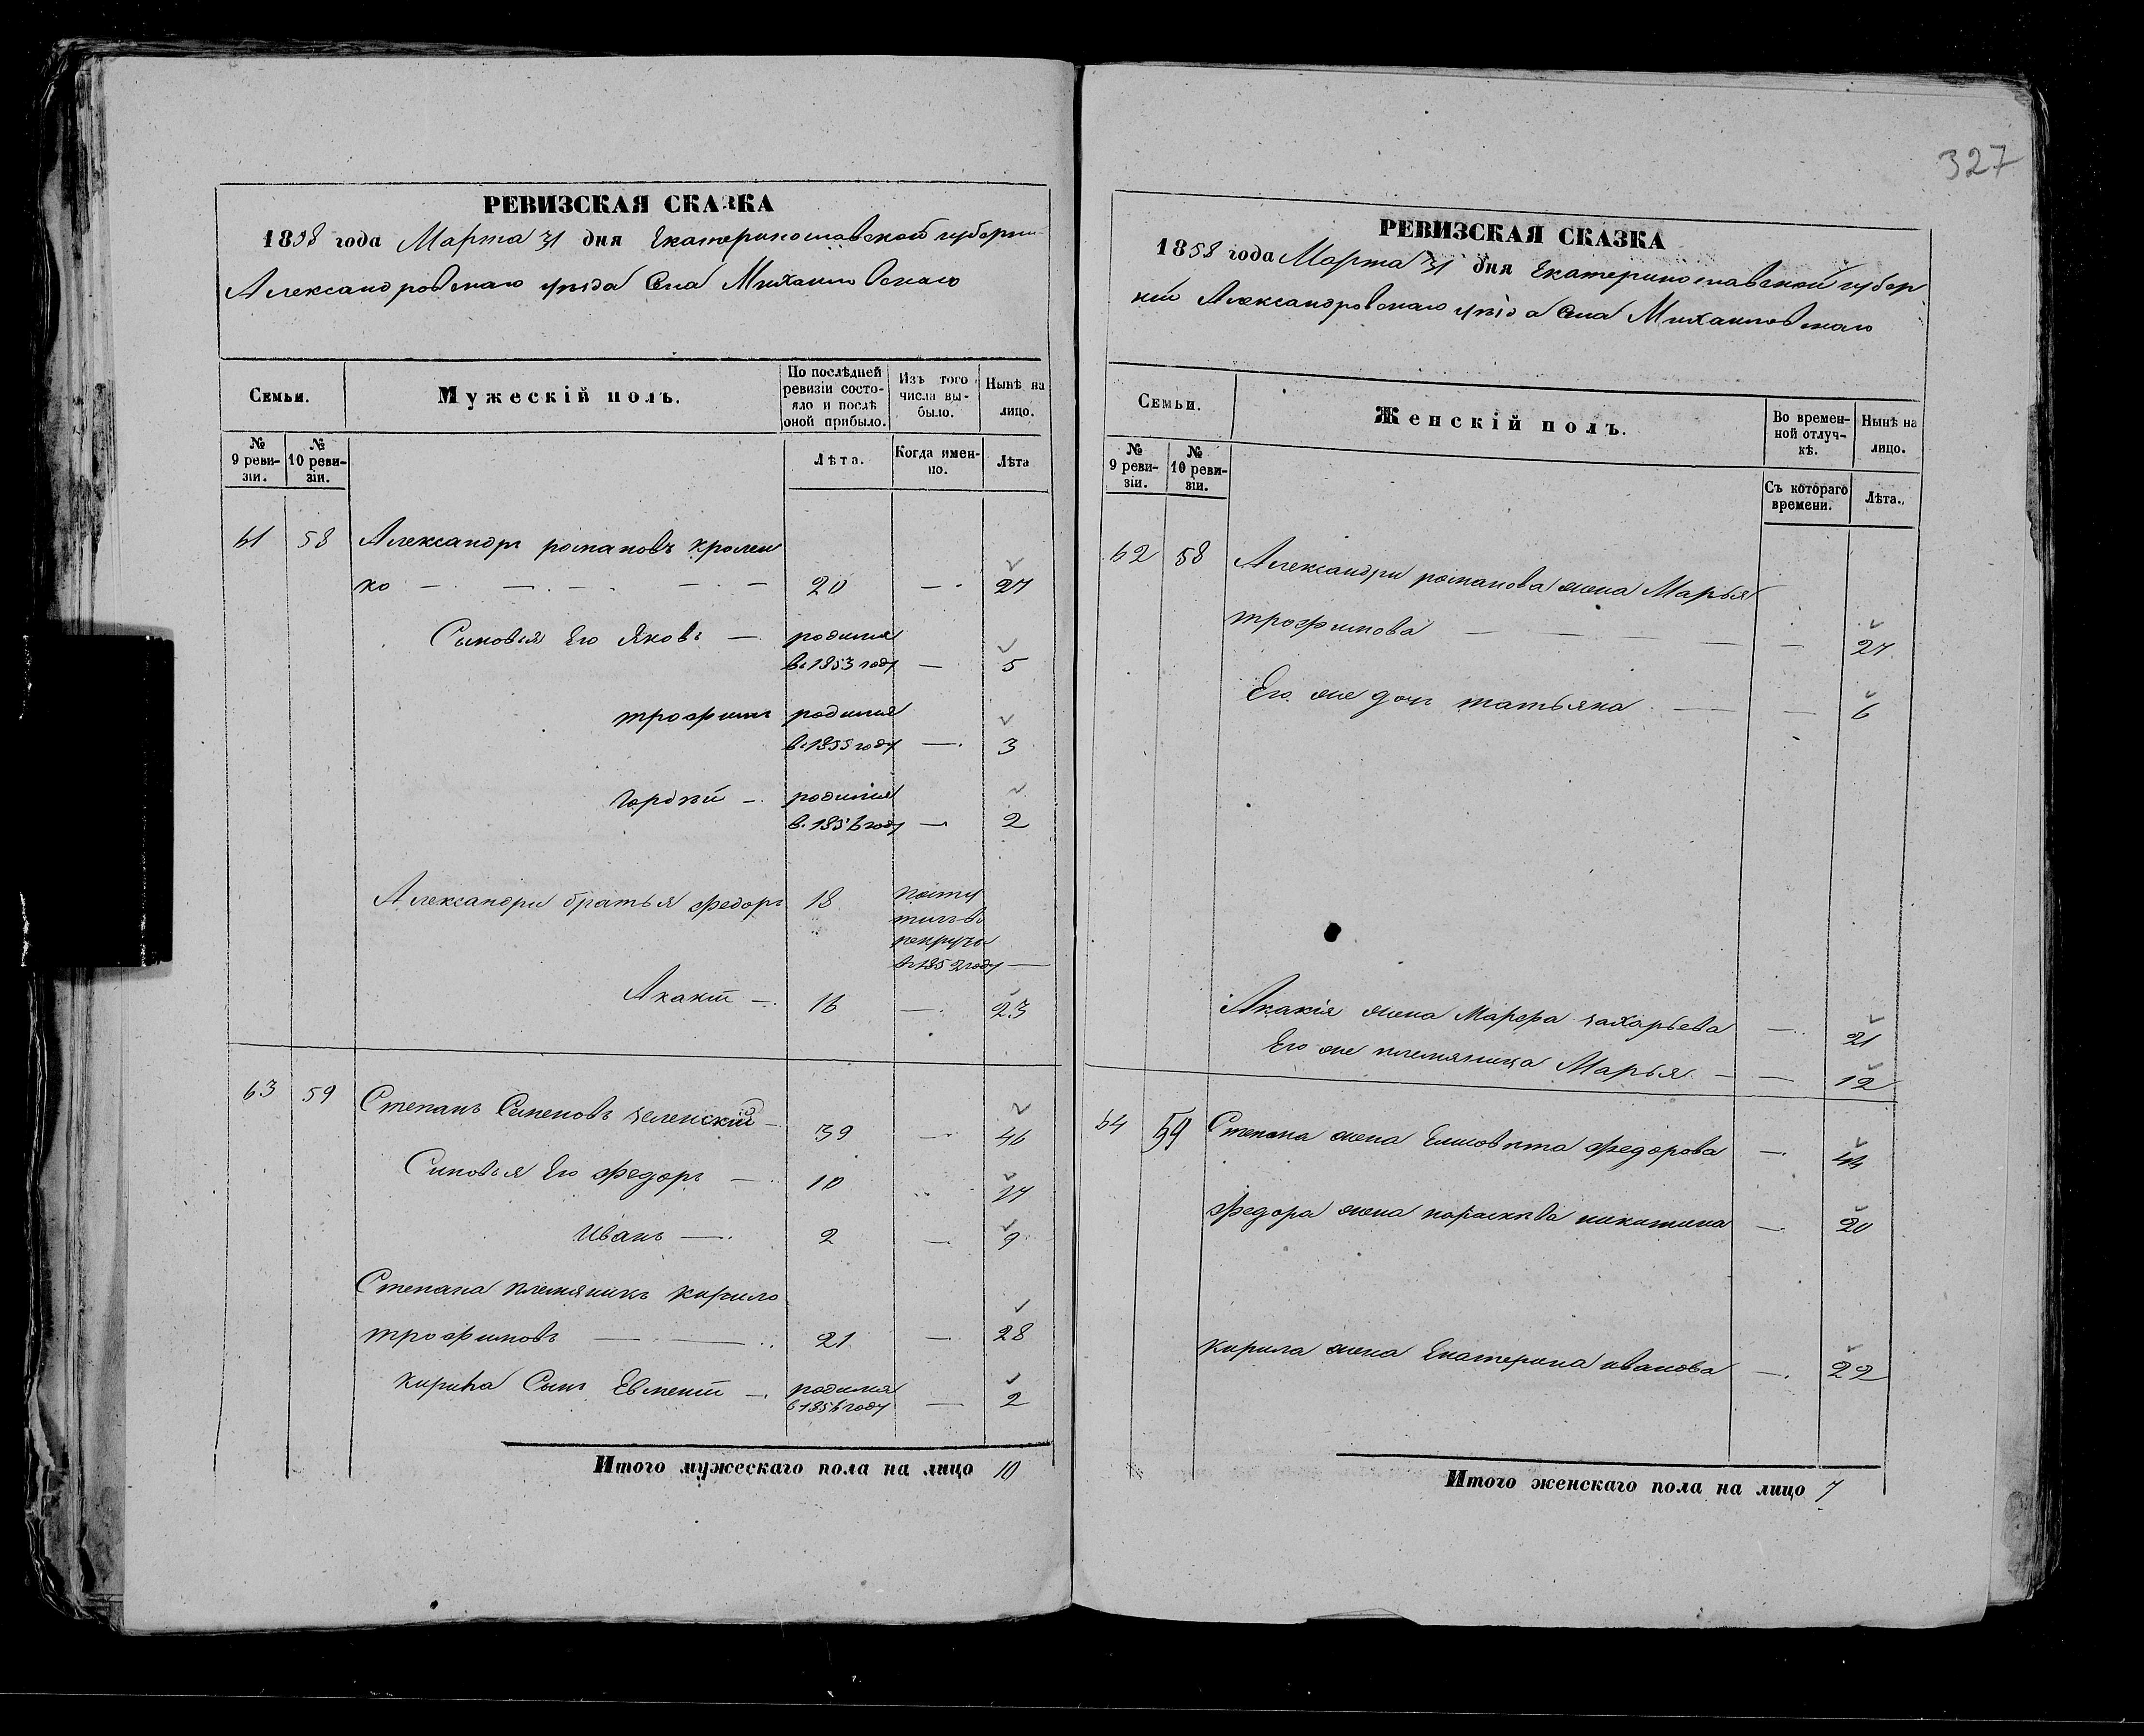 РЕВИЗСКАЯ СКАЗКА
1858 года Марта 31 дня Екатеринославской губерни
Александровскаго уѣзда Села Михайловскаго
Семьи.
Мужескій полъ.
По послѣдней
ревизіи состо-
яло и послѣ
оной прибыло.
Изъ того
числа вы-
было.
Нынѣ на
лицо.
№
9 реви-
зіи.
№
10 реви-
зіи.
Лѣта.
Когда имен-
но.
Лѣта
61 58 Александръ романовъ
ко — — — — — 20 — 27
Сыновья Его Яковъ — родился
въ 1853 году — 5
трофимъ родился
въ 1855 году — 3
Гордѣй — родился
въ 1856 году — 2
Александра братья Федоръ 18 посту
въ
рекруты
въ 1852 году —
Акакій — 16 — 23
63 59 Степанъ Семеновъ зеленскій — 39 — 46
Сыновья Его Федоръ — 10 17
Иванъ — 2 — 9
Степана племяникъ кирило
трофимовъ — — 21 — 28
кирила Сынъ Евментій — родился
в 1856 году — 2
Итого мужескаго пола на лицо 10
327
РЕВИЗСКАЯ СКАЗКА
1858 года Марта 31 дня Екатеринославской губер
ніи Александровскаго уѣзда Села Михайловскаго
Семьи.
Женскій полъ.
Во времен-
ной отлуч-
кѣ.
Нынѣ на
лицо.
№
9 реви-
зіи.
№
10 реви-
зіи.
Съ котораго
времени.
Лѣта.
62 58 Александра романова жена Марья
трофимова — — — — — 27
Его же дочь татьяна — — 6
Акакія жена Марфа захарьева — 21
Его же племяница Марья — — 12
64 59 Степана жена Елисовѣта Федорова — 44
Федора жена параскѣва никитина — 20
кирила жена Екатерина иванова — 22
Итого женскаго пола на лицо 7